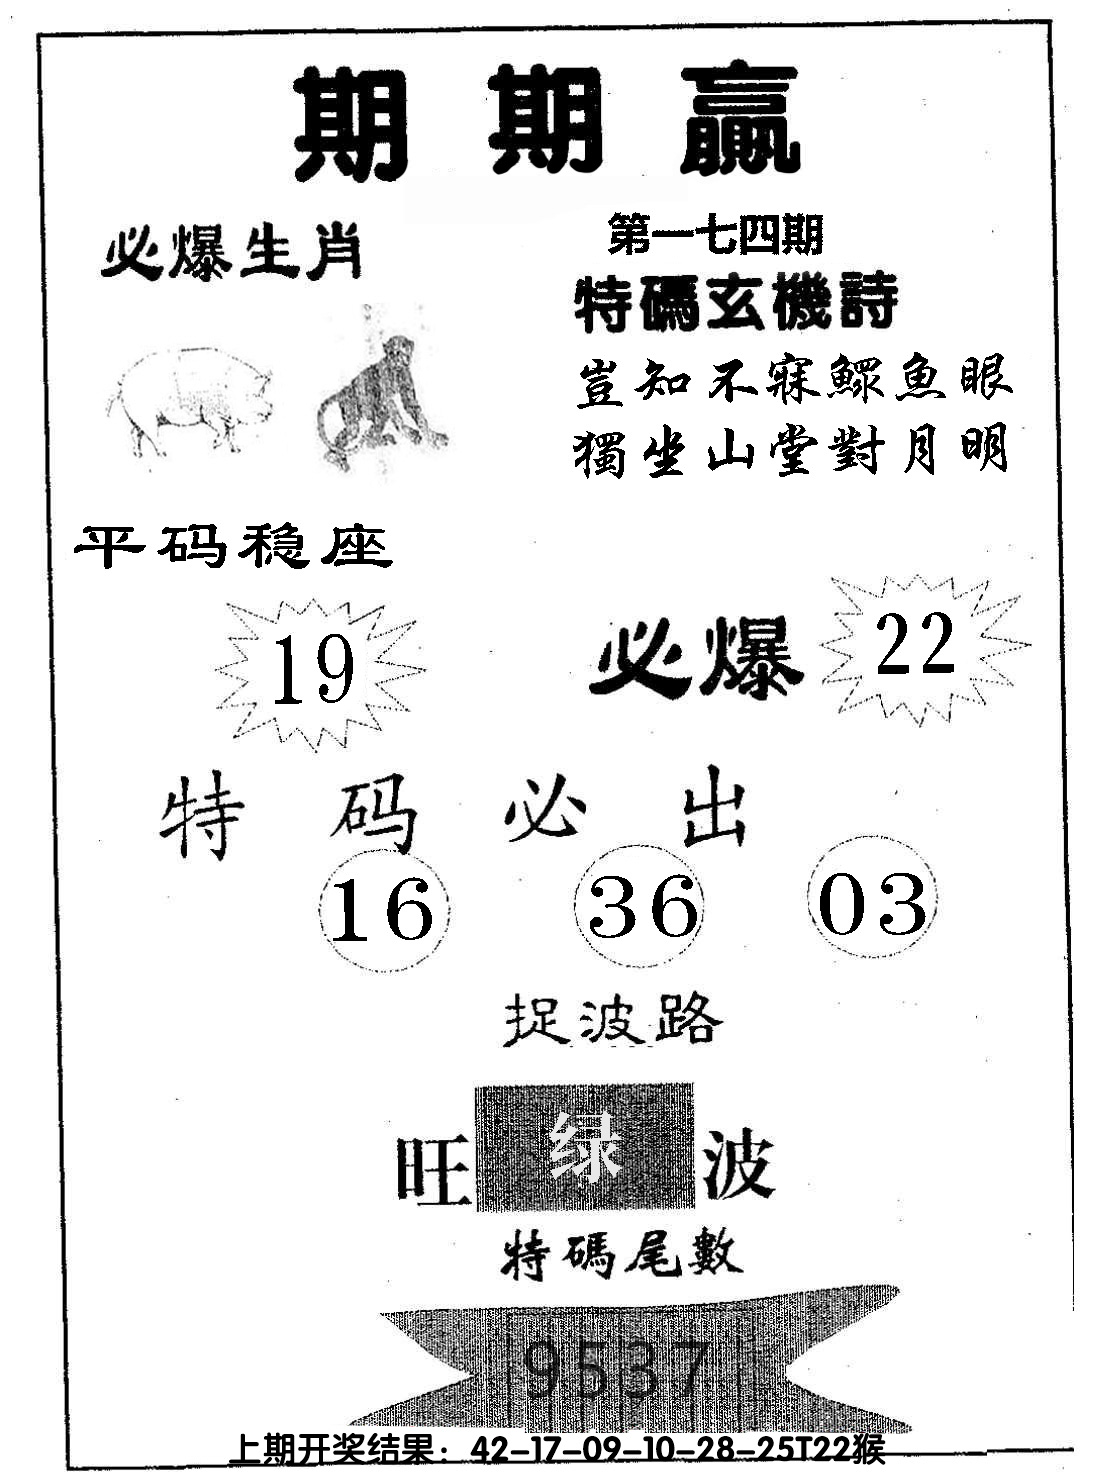 期期贏
必爆生肖
第一七四期
特碼玄機詩
豈知不寐鰥魚眼
獨坐山堂對月明
平码稳座
19
必爆 22
特码必出
16 36 03
捉波路
旺 绿 波
特碼尾數
9537
上期开奖结果：42-17-09-10-28-25T22猴